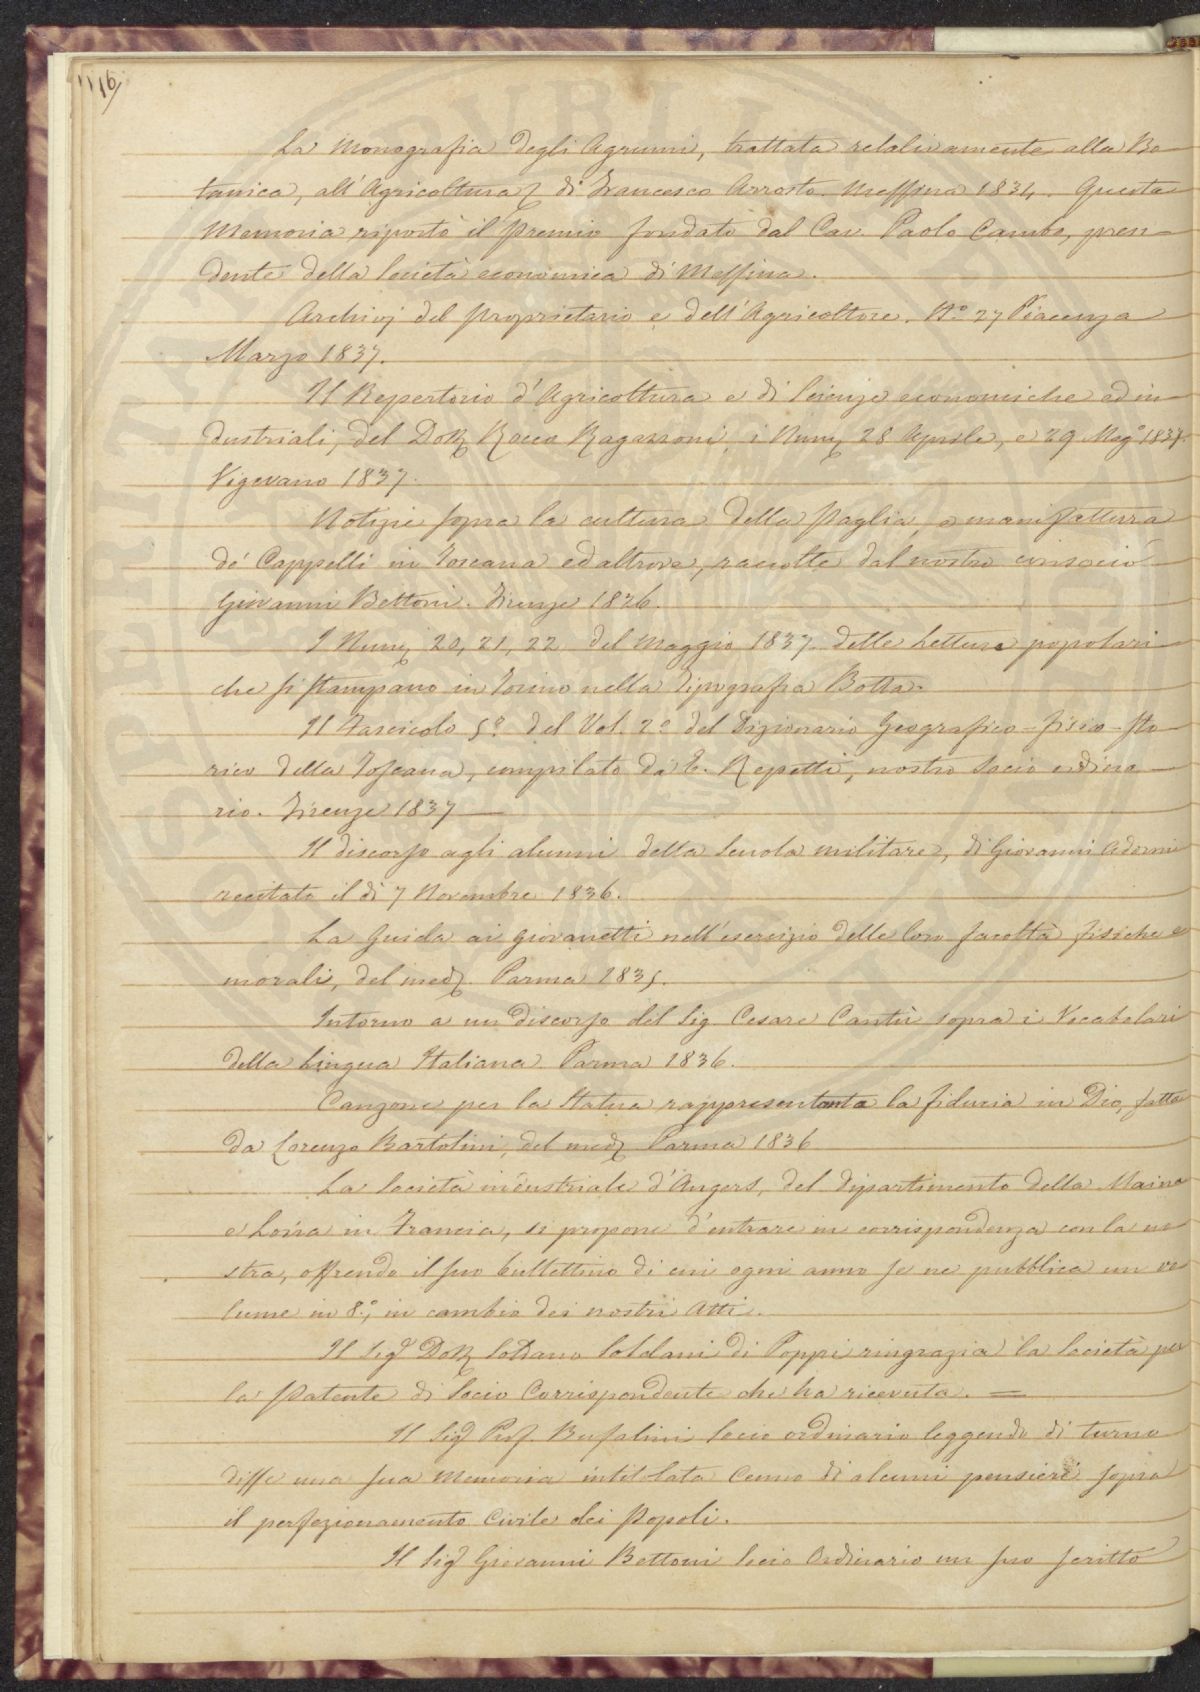 116
La Monografia degli Agrumi, trattata relativamente alla Bo-
tanica, all'Agricoltura di Francesco Arrosto. Messina 1834. Questa
Memoria riportò il premio fondato dal Cav. Paolo Cumbo, presi-
dente della Società economica di Messina.
Archivj del proprietario e dell'Agricoltore. N.o 27 Piacenza
Marzo 1837.
Il Repertorio d'Agricoltura e di Scienze economiche ed in-
dustriali, del Dott. Rocco Ragazzoni, i Num. 28 Aprile, e 29 Mag.o 1837.
Vigevano 1837.
Notizie sopra la cultura della paglia, e manifattura
de' Cappelli in Toscana ed altrove, raccolte dal nostro consocio
Giovanni Bettoni. Firenze 1826.
I Num. 20, 21, 22 del Maggio 1837. delle Letture popolari
che si stampano in Torino nella Tipografia Botta.
Il Fascicolo 5.o del Vol. 2.o del Dizionario Geografico-fisico-sto-
rico della Toscana, compilato da E. Repetti, nostro Socio ordina-
rio. Firenze 1837
Il discorso agli alunni della Scuola militare, di Giovanni Adorni
recitato il dì 7 Novembre 1836.
La Guida ai giovanetti nell'esercizio delle loro facoltà fisiche e
morali, del med. Parma 1835.
Intorno a un discorso del Sig. Cesare Cantù sopra i Vocabolari
della Lingua Italiana. Parma 1836.
Canzone per la Statua rappresentante la fiducia in Dio, fatta
da Lorenzo Bartolini, del med. Parma 1836
La Società industriale d'Angers, del dipartimento della Maina
e Loira in Francia, si propone d'entrare in corrispondenza con la no-
stra, offrendo il suo bullettino di cui ogni anno se ne pubblica un vo-
lume in 8.o, in cambio dei nostri Atti.
Il Sig. Dott. Soldani di Poppi ringrazia la Società per
la patente di Socio Corrispondente che ha ricevuta. =
Il Sig. Prof. Bufalini Socio ordinario leggendo di turno
disse una sua Memoria intitolata Cenno di alcuni pensieri sopra
il perfezionamento Civile dei Popoli.
Il Sig. Giovanni Bettoni Socio Ordinario un suo scritto